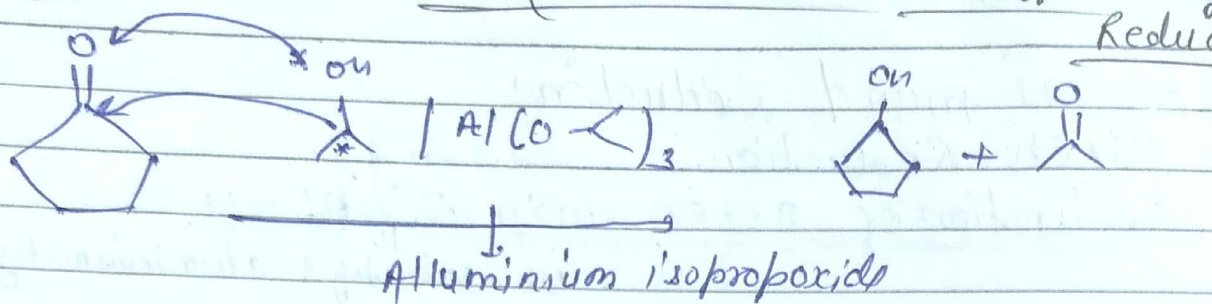 Redu
O
OH
OH
O
* | Al(O-<)3 +
Alluminium isopropoxide